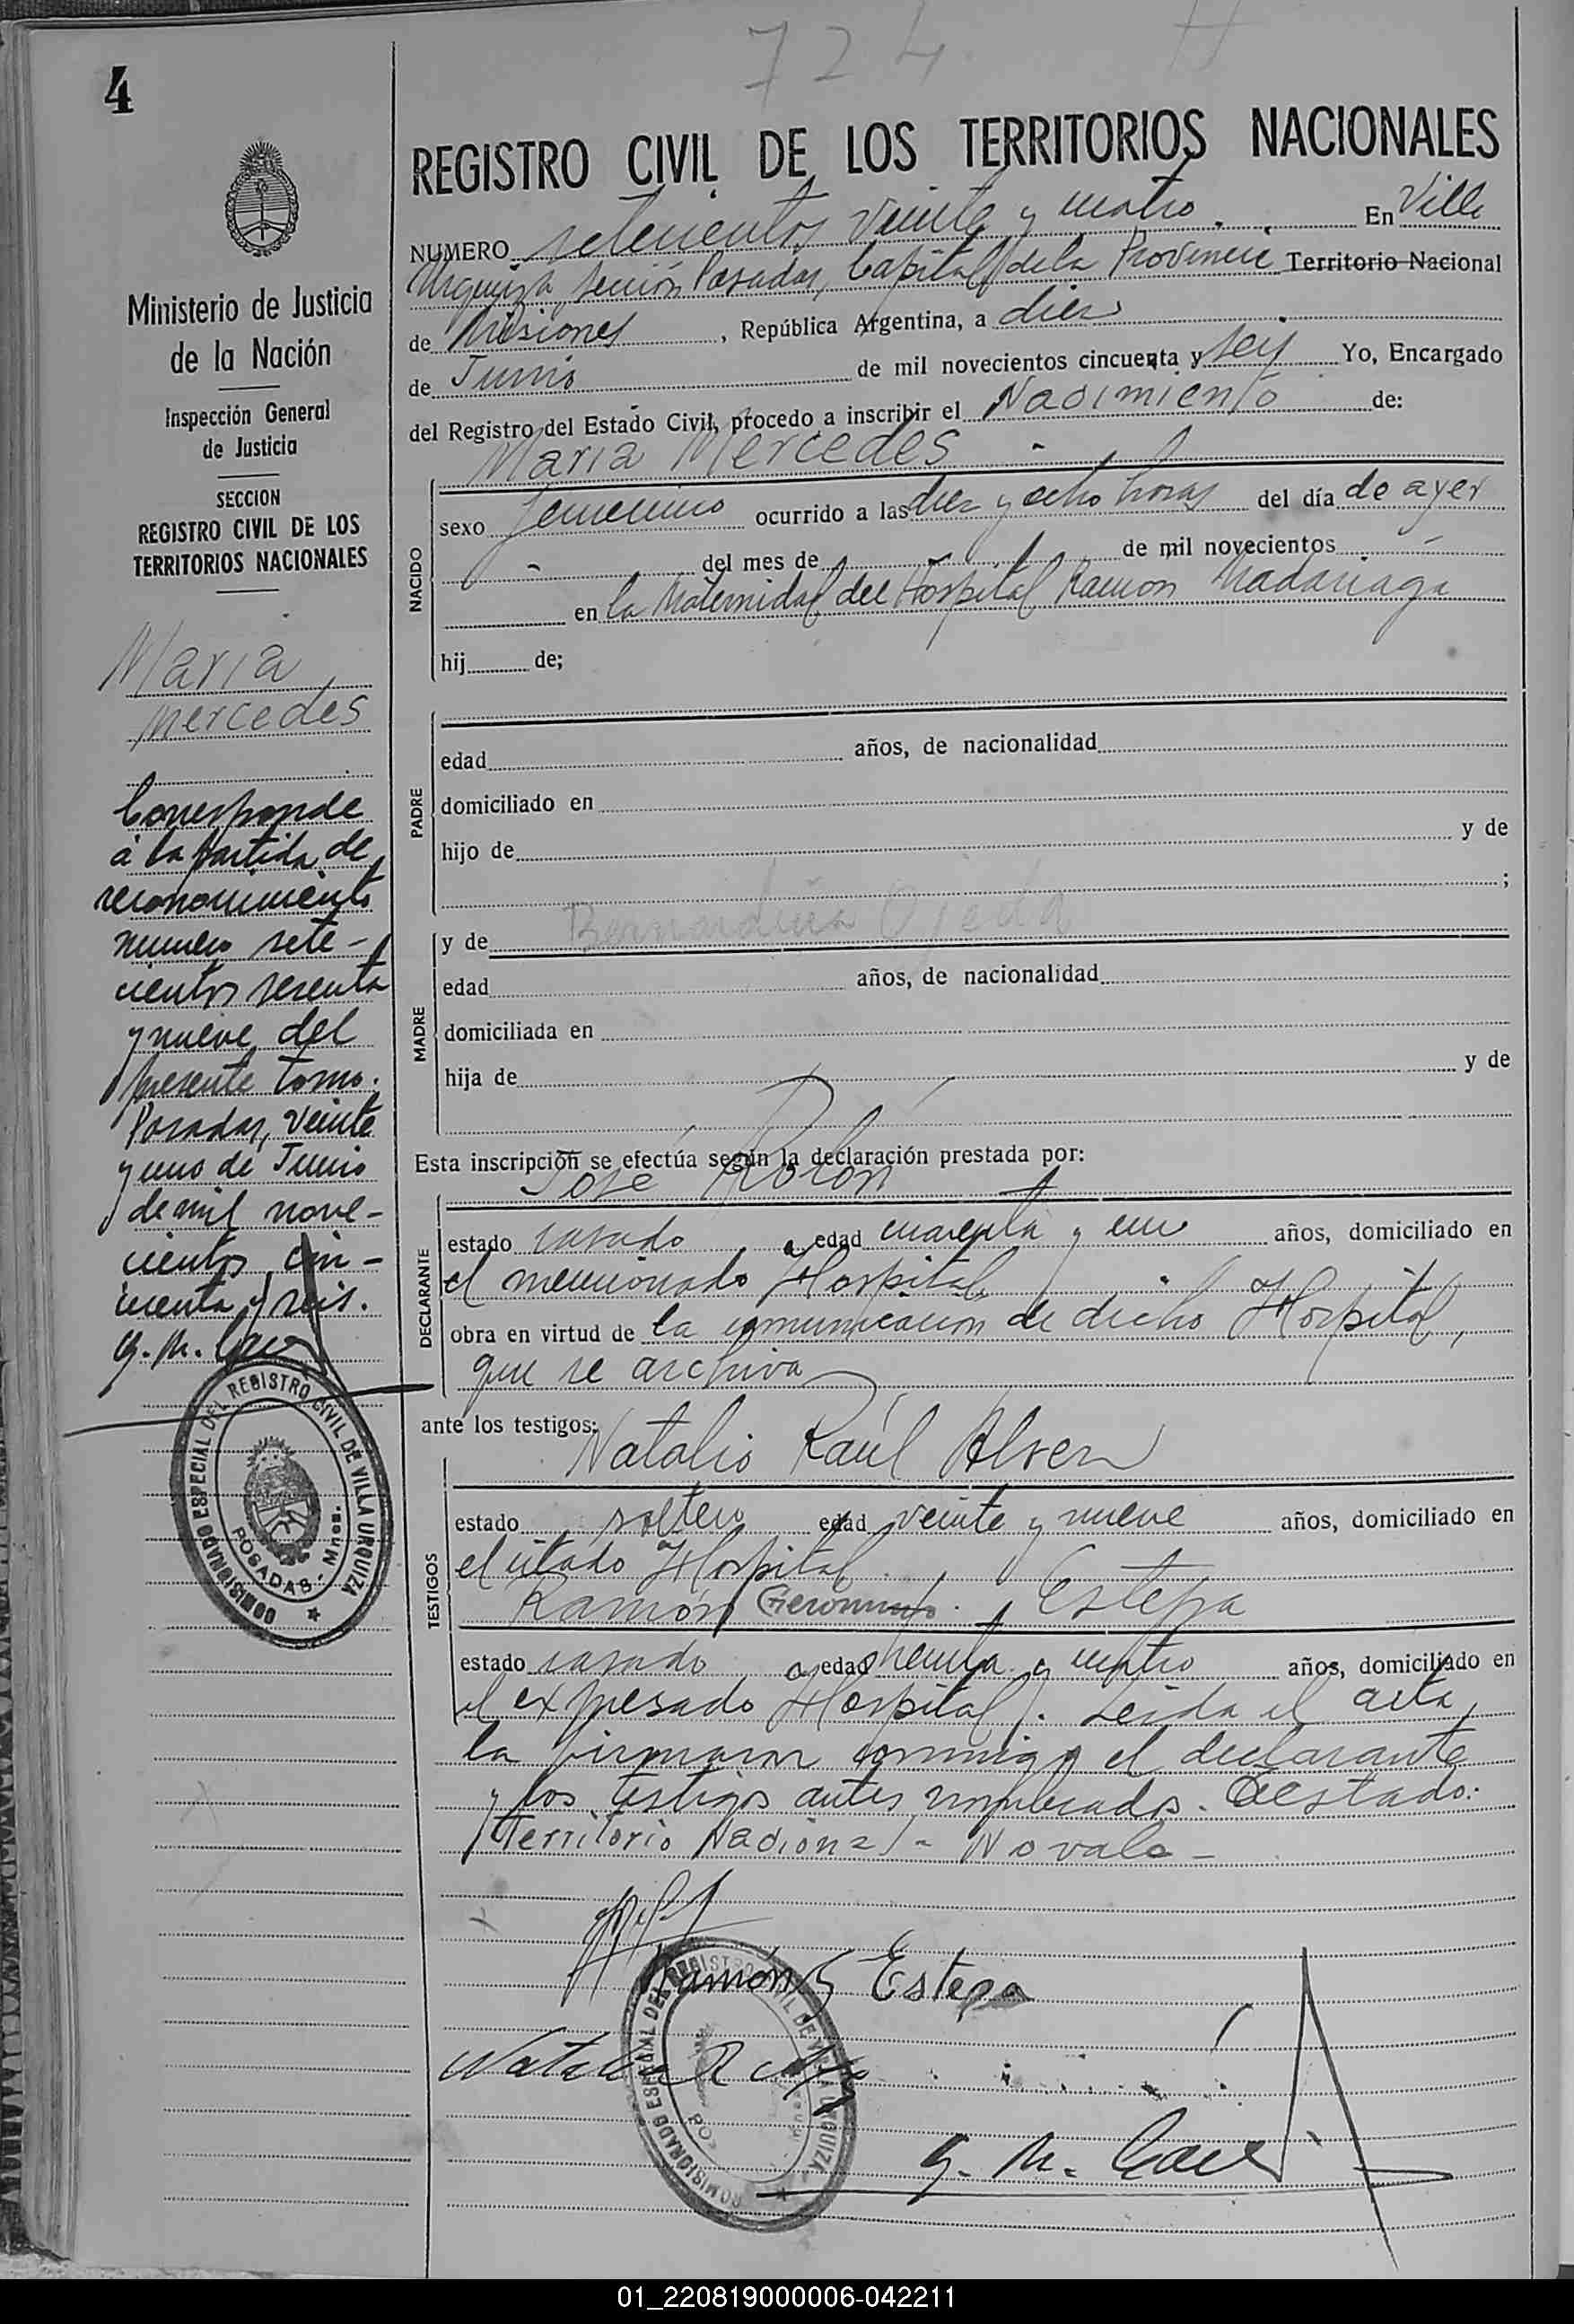 724
4
REGISTRO CIVIL DE LOS TERRITORIOS NACIONALES
NUMERO setecientos veinte y cuatro. En Villa
Urquiza, sección Posadas, Capital de la Provincia Territorio Nacional
de Misiones, República Argentina, a diez
de Junio de mil novecientos cincuenta y seis Yo, Encargado
del Registro del Estado Civil, procedo a inscribir el Nacimiento de:
Maria Mercedes -
NACIDO
sexo femenino ocurrido a las diez y ocho horas del día de ayer
- del mes de de mil novecientos -
en la Maternidad del Hospital Ramón Madariaga
hij de;
PADRE
edad años, de nacionalidad
domiciliado en
hijo de y de
;
MADRE
y de Bernardina Ojeda
edad años, de nacionalidad
domiciliada en
hija de y de
Esta inscripción se efectúa según la declaración prestada por:
José Rolón
DECLARANTE
estado casado, edad cuarenta y un años, domiciliado en
el mencionado Hospital,
obra en virtud de la comunicación de dicho Hospital,
que se archiva
ante los testigos:
Natalio Raúl Alsen
TESTIGOS
estado soltero edad veinte y nueve años, domiciliado en
el citado Hospital.
Ramón Geronimo Estepa
estado casado edad treinta y cuatro años, domiciliado en
el expresado Hospital. Leida el acta,
la firmaron conmigo el declarante
y los testigos antes nombrados. Testado:
Territorio Nacional - No vale -
Ramón G Estepa
Natalio R
G. M.
Ministerio de Justicia
de la Nación
Inspección General
de Justicia
SECCION
REGISTRO CIVIL DE LOS
TERRITORIOS NACIONALES
Maria
Mercedes
Corresponde
a la partida de
reconocimiento
numero sete-
cientos sesenta
y nueve del
presente tomo.
Posadas, veinte
y uno de Junio
de mil nove-
cientos cin-
cuenta y seis.
G. M.
COMISIONADO ESPECIAL DEL REGISTRO CIVIL DE VILLA URQUIZA
POSADAS - Mnes.
COMISIONADO ESPECIAL DEL REGISTRO CIVIL DE VILLA URQUIZA
01_220819000006-042211